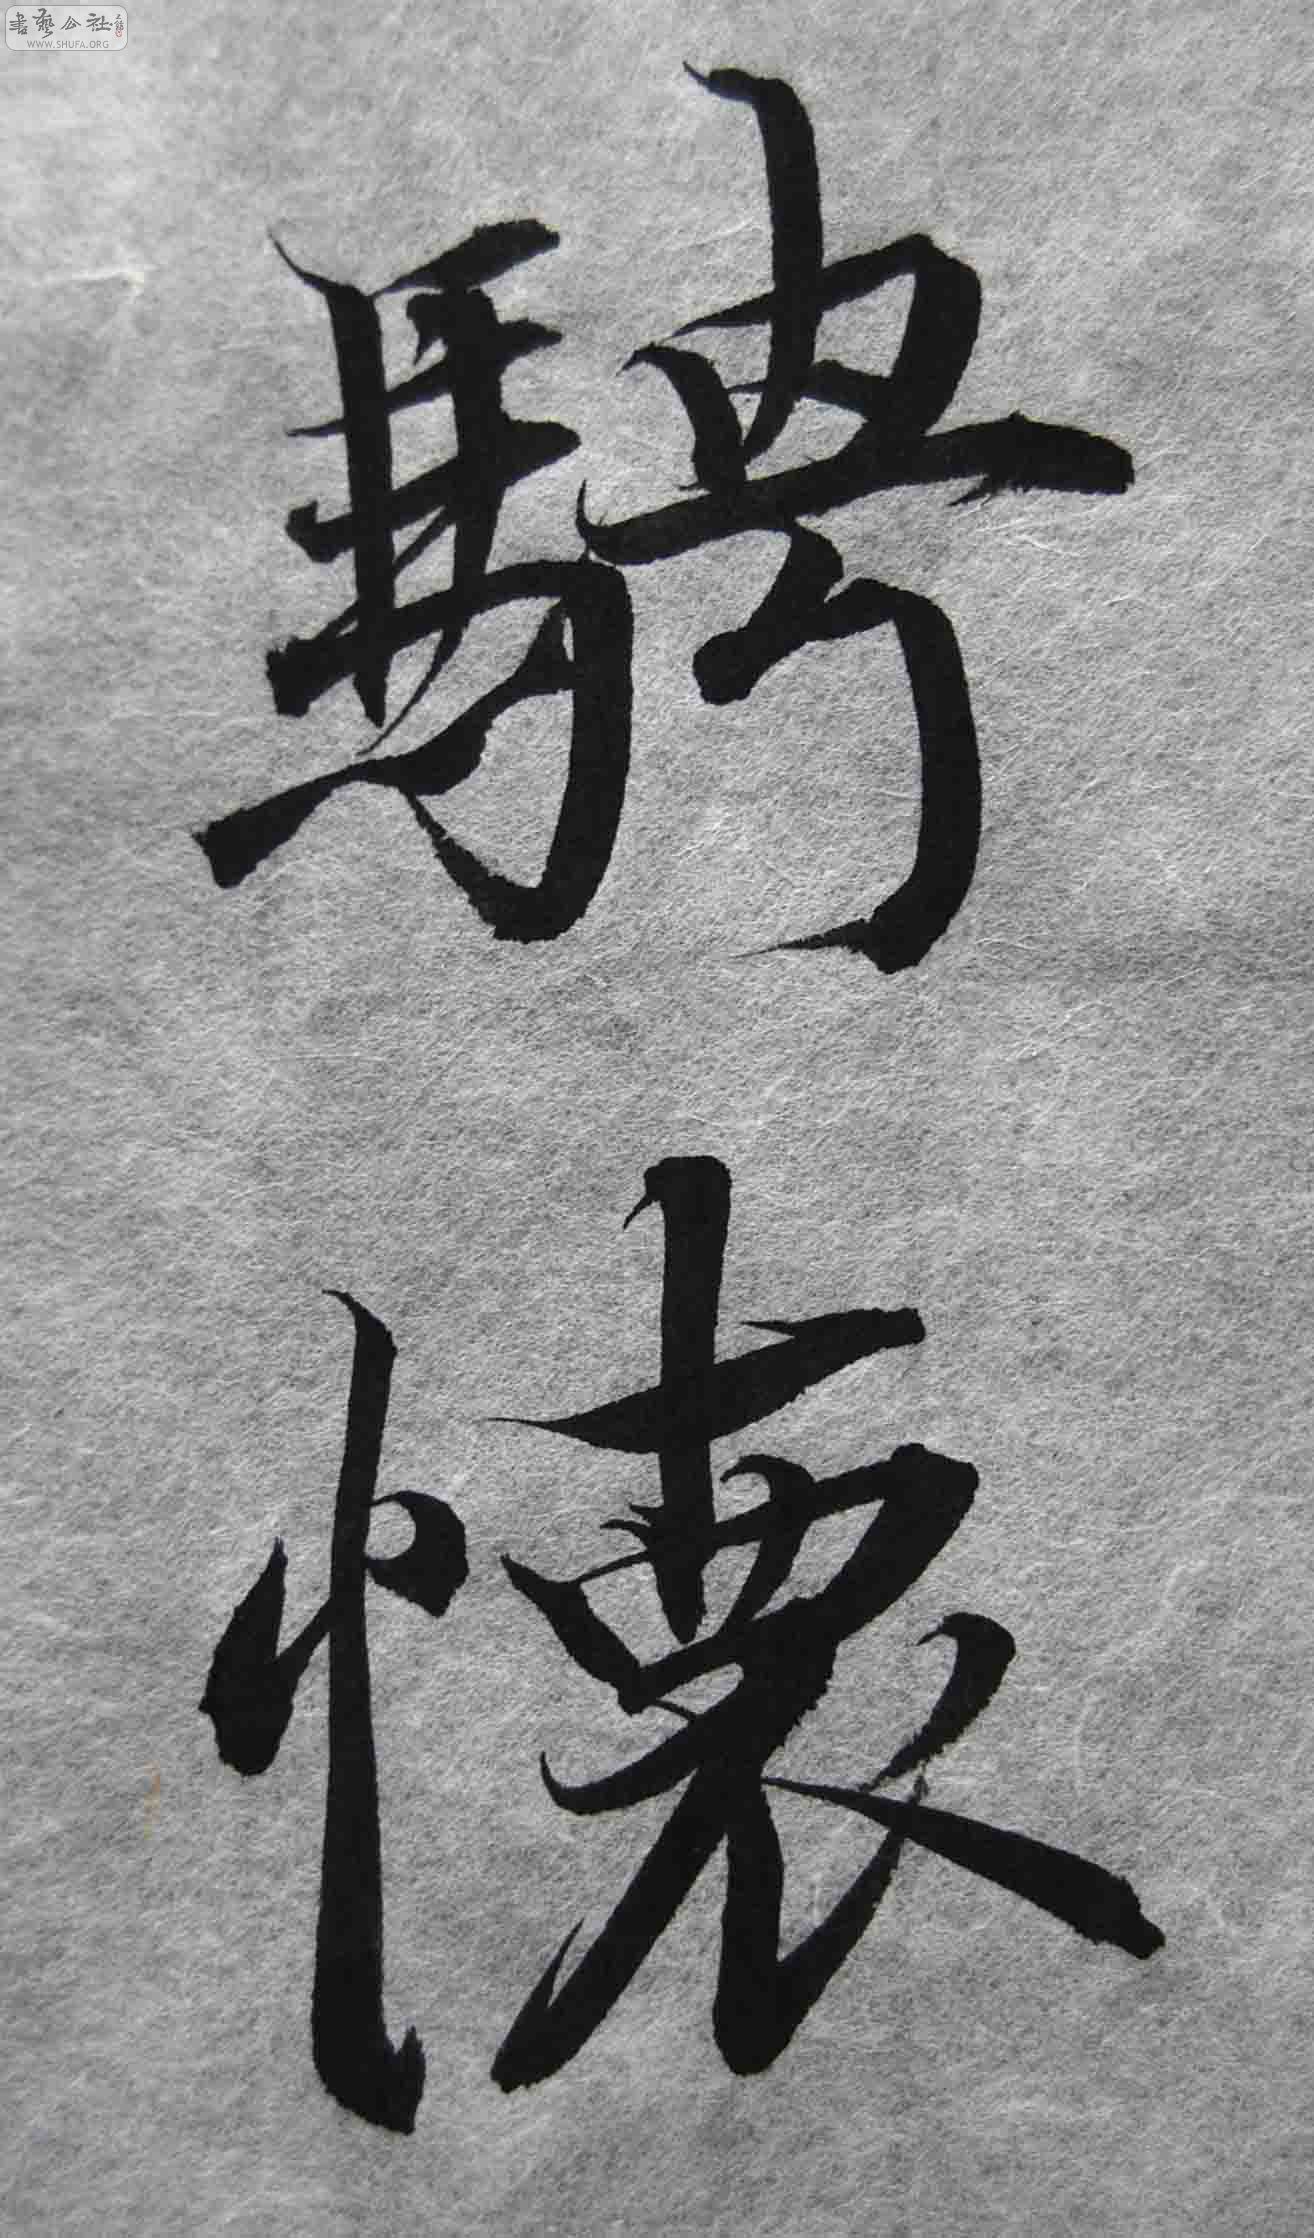 書藝公社
WWW.SHUFA.ORG
騁
懷